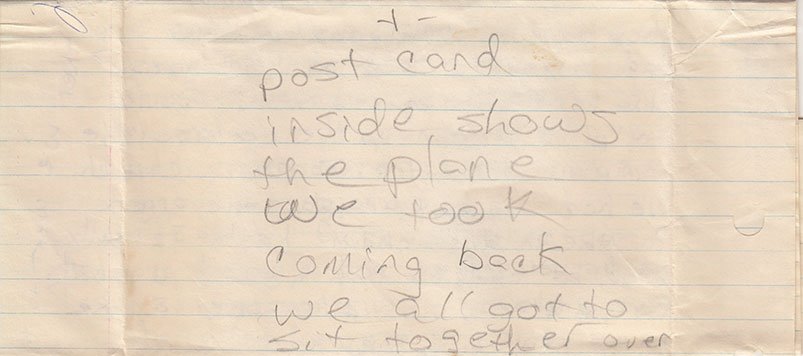 post card
inside shows
the plane
we took
coming back
we all got to
sit together over